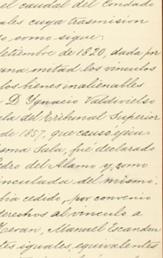 el caudal del Condado
ales cuya trasmision
o, como sigue:
etiembre de 1820, dada por
una mitad los vínculos
los bienes inalienables
D. Ignacio Valdivielso
ala del Tribunal Superior
de 1857, que causó ejecu
sma Sala, fué declarado
edro del Alamo y, como
inculada del mismo,
bia cedido, por convenio
erechos al vínculo a
Teran, Manuel Escandon
tes iguales, equivalentes